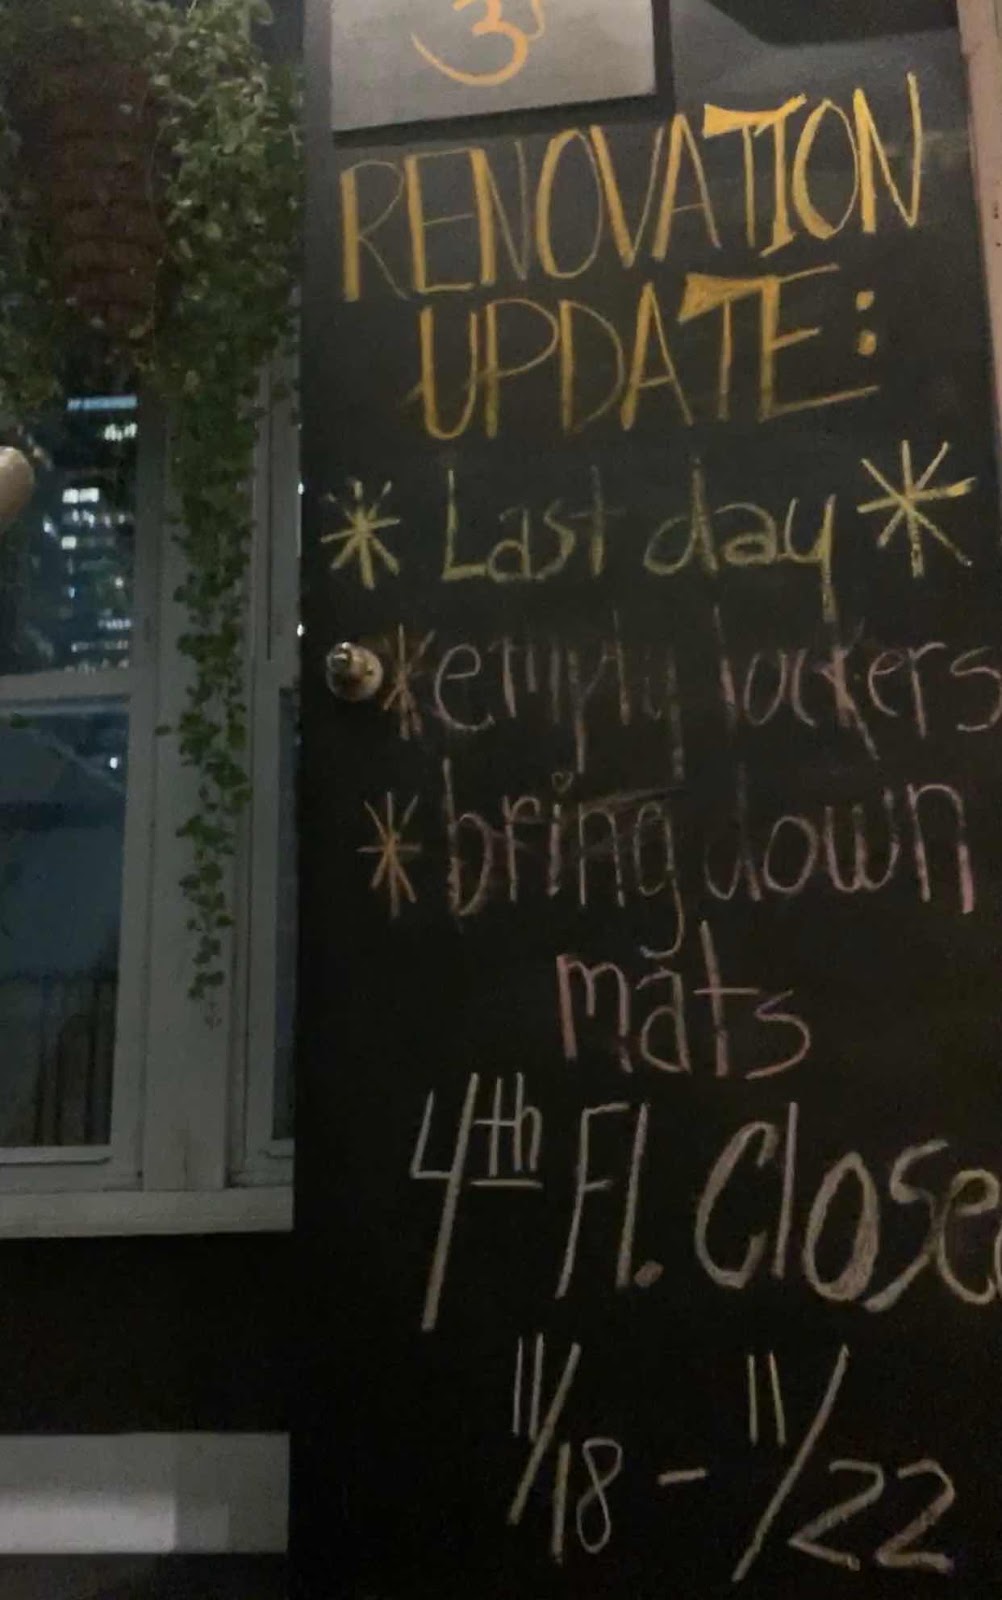 3
RENOVATION
UPDATE:
* Last day *
* empty lockers
* bring down
mats
4th Fl. Close
11/18 - 11/22